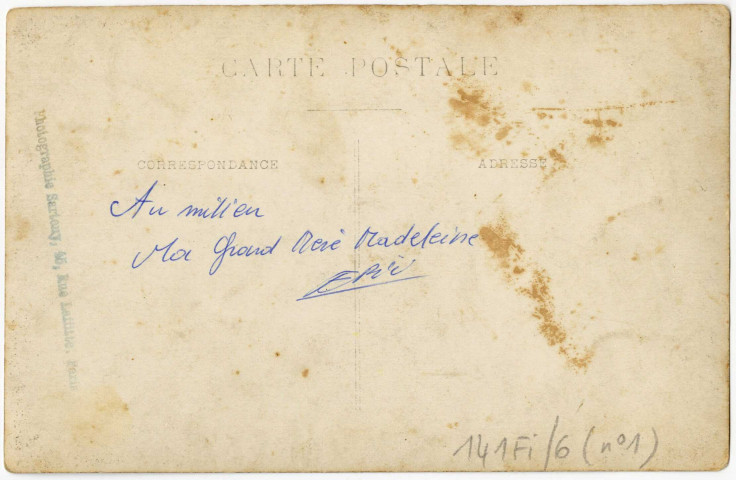 CARTE POSTALE
CORRESPONDANCE
ADRESSE
Au milieu
Ma Grand Mère Madeleine
Photographie 45, Rue Laffitte, Paris
141Fi/6 (n°1)